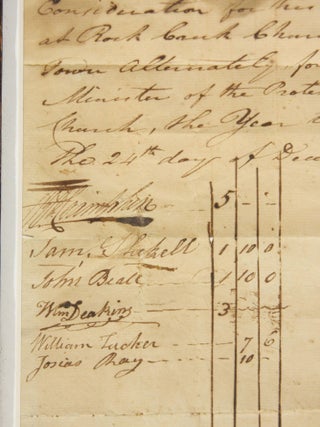 Consideration for this
at Rock Creek Chur
Town Alternately, fo
Minister of the Prote
Church, the Year
The 24th day of Dec
5 - -
Sam. Shekell 1 10 0
John Beall 1 10 0
Wm Deakins 3 - -
William Tucker - 7 6
Josias Ray - 10 -